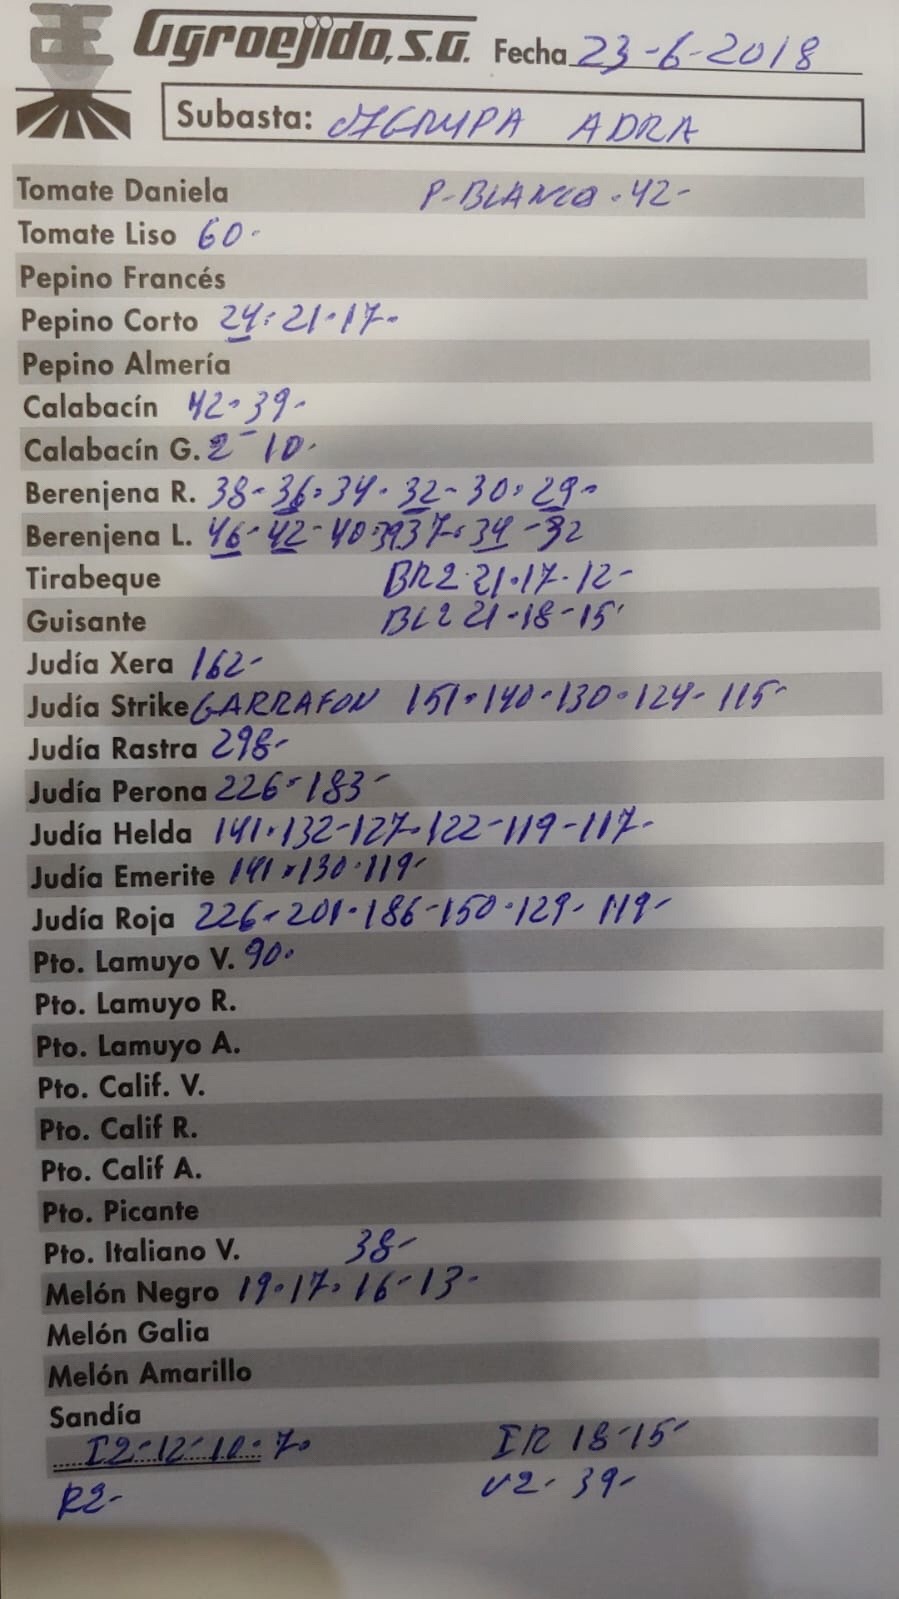 Agroejido, S.A. Fecha 23-6-2018
Subasta: AGRUPA ADRA
Tomate Daniela P-BLANCO. 42-
Tomate Liso 60-
Pepino Francés
Pepino Corto 24-21-17-
Pepino Almería
Calabacín 42-39-
Calabacín G. 2- 10-
Berenjena R. 38-36-34-32-30-29-
Berenjena L. 46-42-40-39 37-34-32
Tirabeque BR2 21-17-12-
Guisante BL2 21-18-15-
Judía Xera 162-
Judía Strike GARRAFON 151-140-130-124-115-
Judía Rastra 298-
Judía Perona 226-183-
Judía Helda 141-132-127-122-119-117-
Judía Emerite 141-130-119-
Judía Roja 226-201-186-150-129-119-
Pto. Lamuyo V. 90-
Pto. Lamuyo R.
Pto. Lamuyo A.
Pto. Calif. V.
Pto. Calif R.
Pto. Calif A.
Pto. Picante
Pto. Italiano V. 38-
Melón Negro 19-17-16-13-
Melón Galia
Melón Amarillo
Sandía
I2-12-10-7- IR 18-15-
R2- V2- 39-